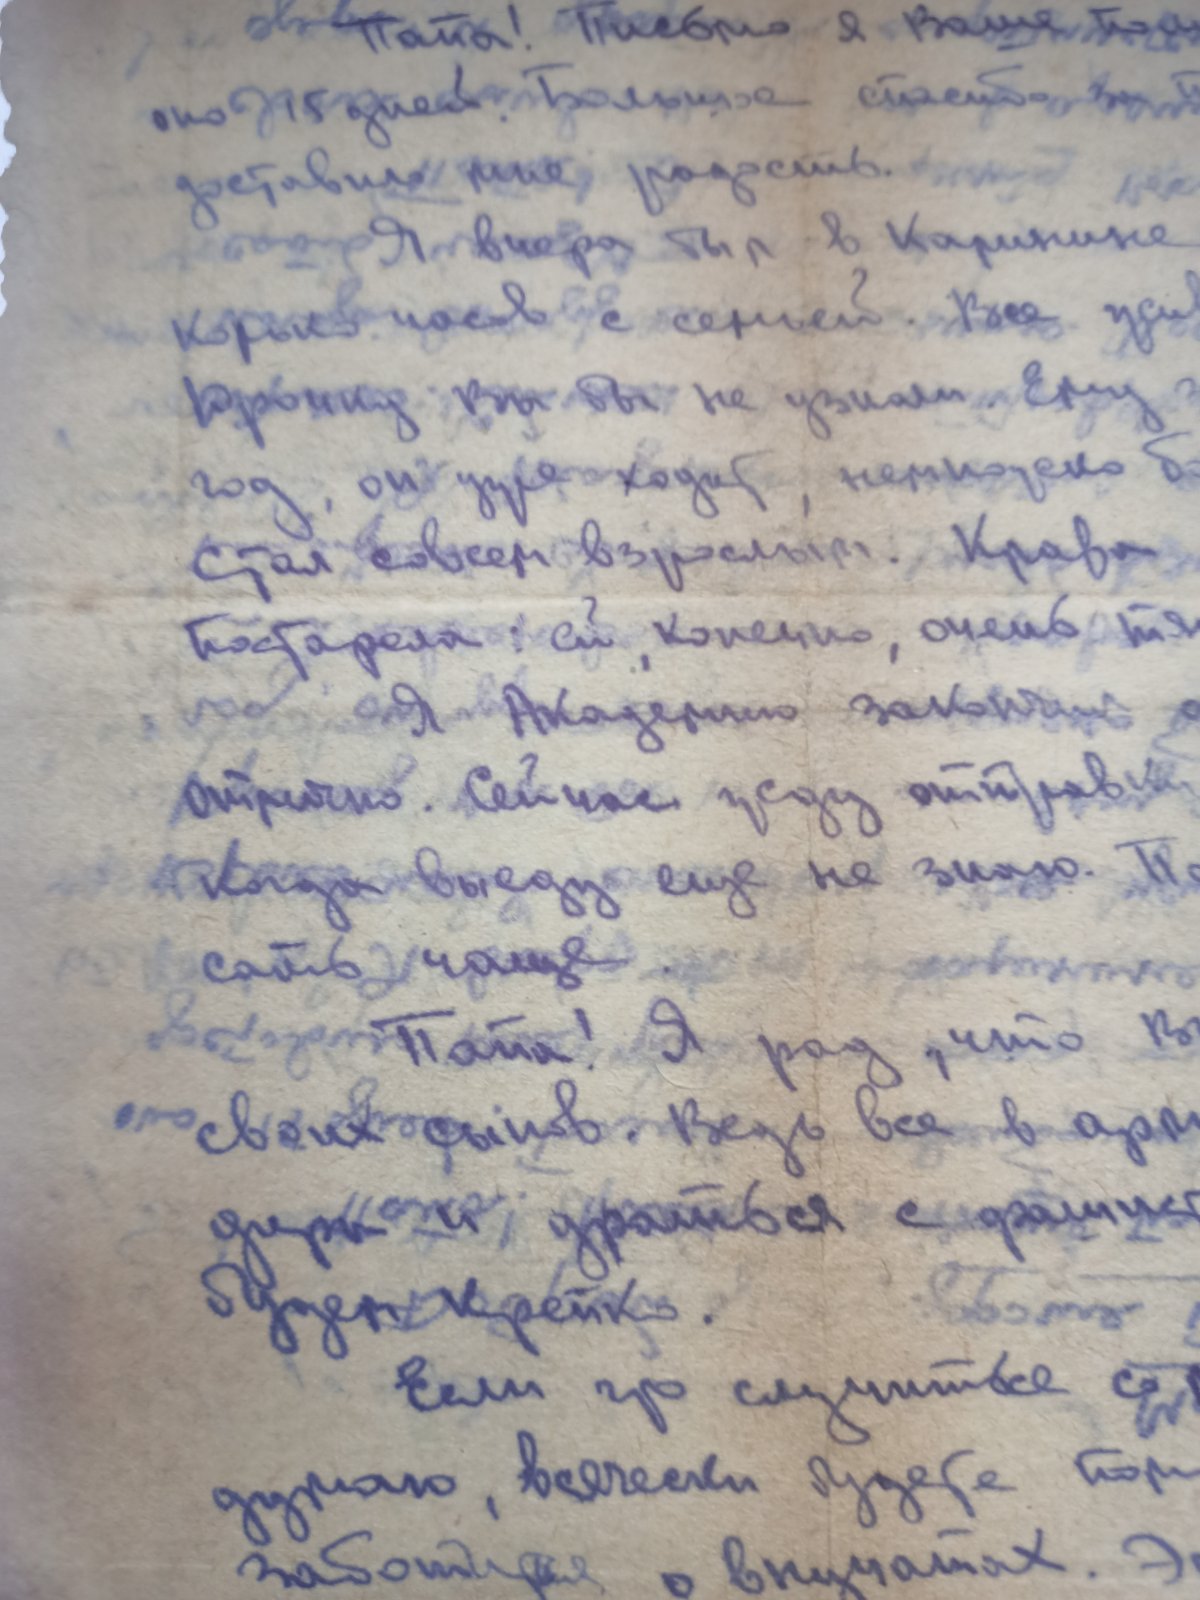 Папа! Письмо я Ваше пол
оно 15 дней. Большое спасибо за
доставило мне радость.
Я вчера был в Калинине
колько часов с семьей. Все
Юрочку Вы бы не узнали. Ему
год, он уже ходит, немножко б
стал совсем взрослым. Клава
постарела: ей, конечно, очень тя
Я Академию закончил
отлично. Сейчас жду отправк
Когда выеду еще не знаю. П
сать чаще.
Папа! Я рад, что В
своих сынов. Ведь все в арм
и драться с фашист
будем крепко.
Если что случиться со
думаю, всячески будете пом
заботиться о внучатах. Э